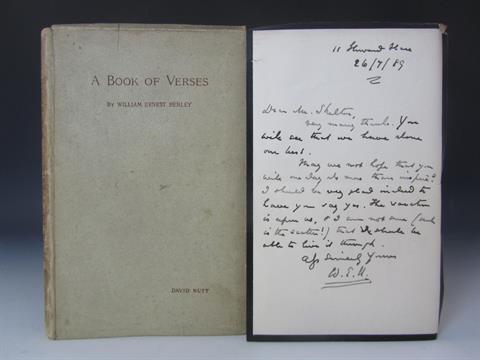 A BOOK OF VERSES
BY WILLIAM ERNEST HENLEY
DAVID NUTT
11 Howard Place
26/7/89
Dear Mr. Skelton,
very many thanks. You
will see that we have done
our best.
May we not hope that you
will one day do more than inspire?
I should be very glad indeed to
have you say yes. The vacation
is upon us, & I am not sure (such
is the
) that we should be
able to live it through.
Sincerely Yours
W. E. H.